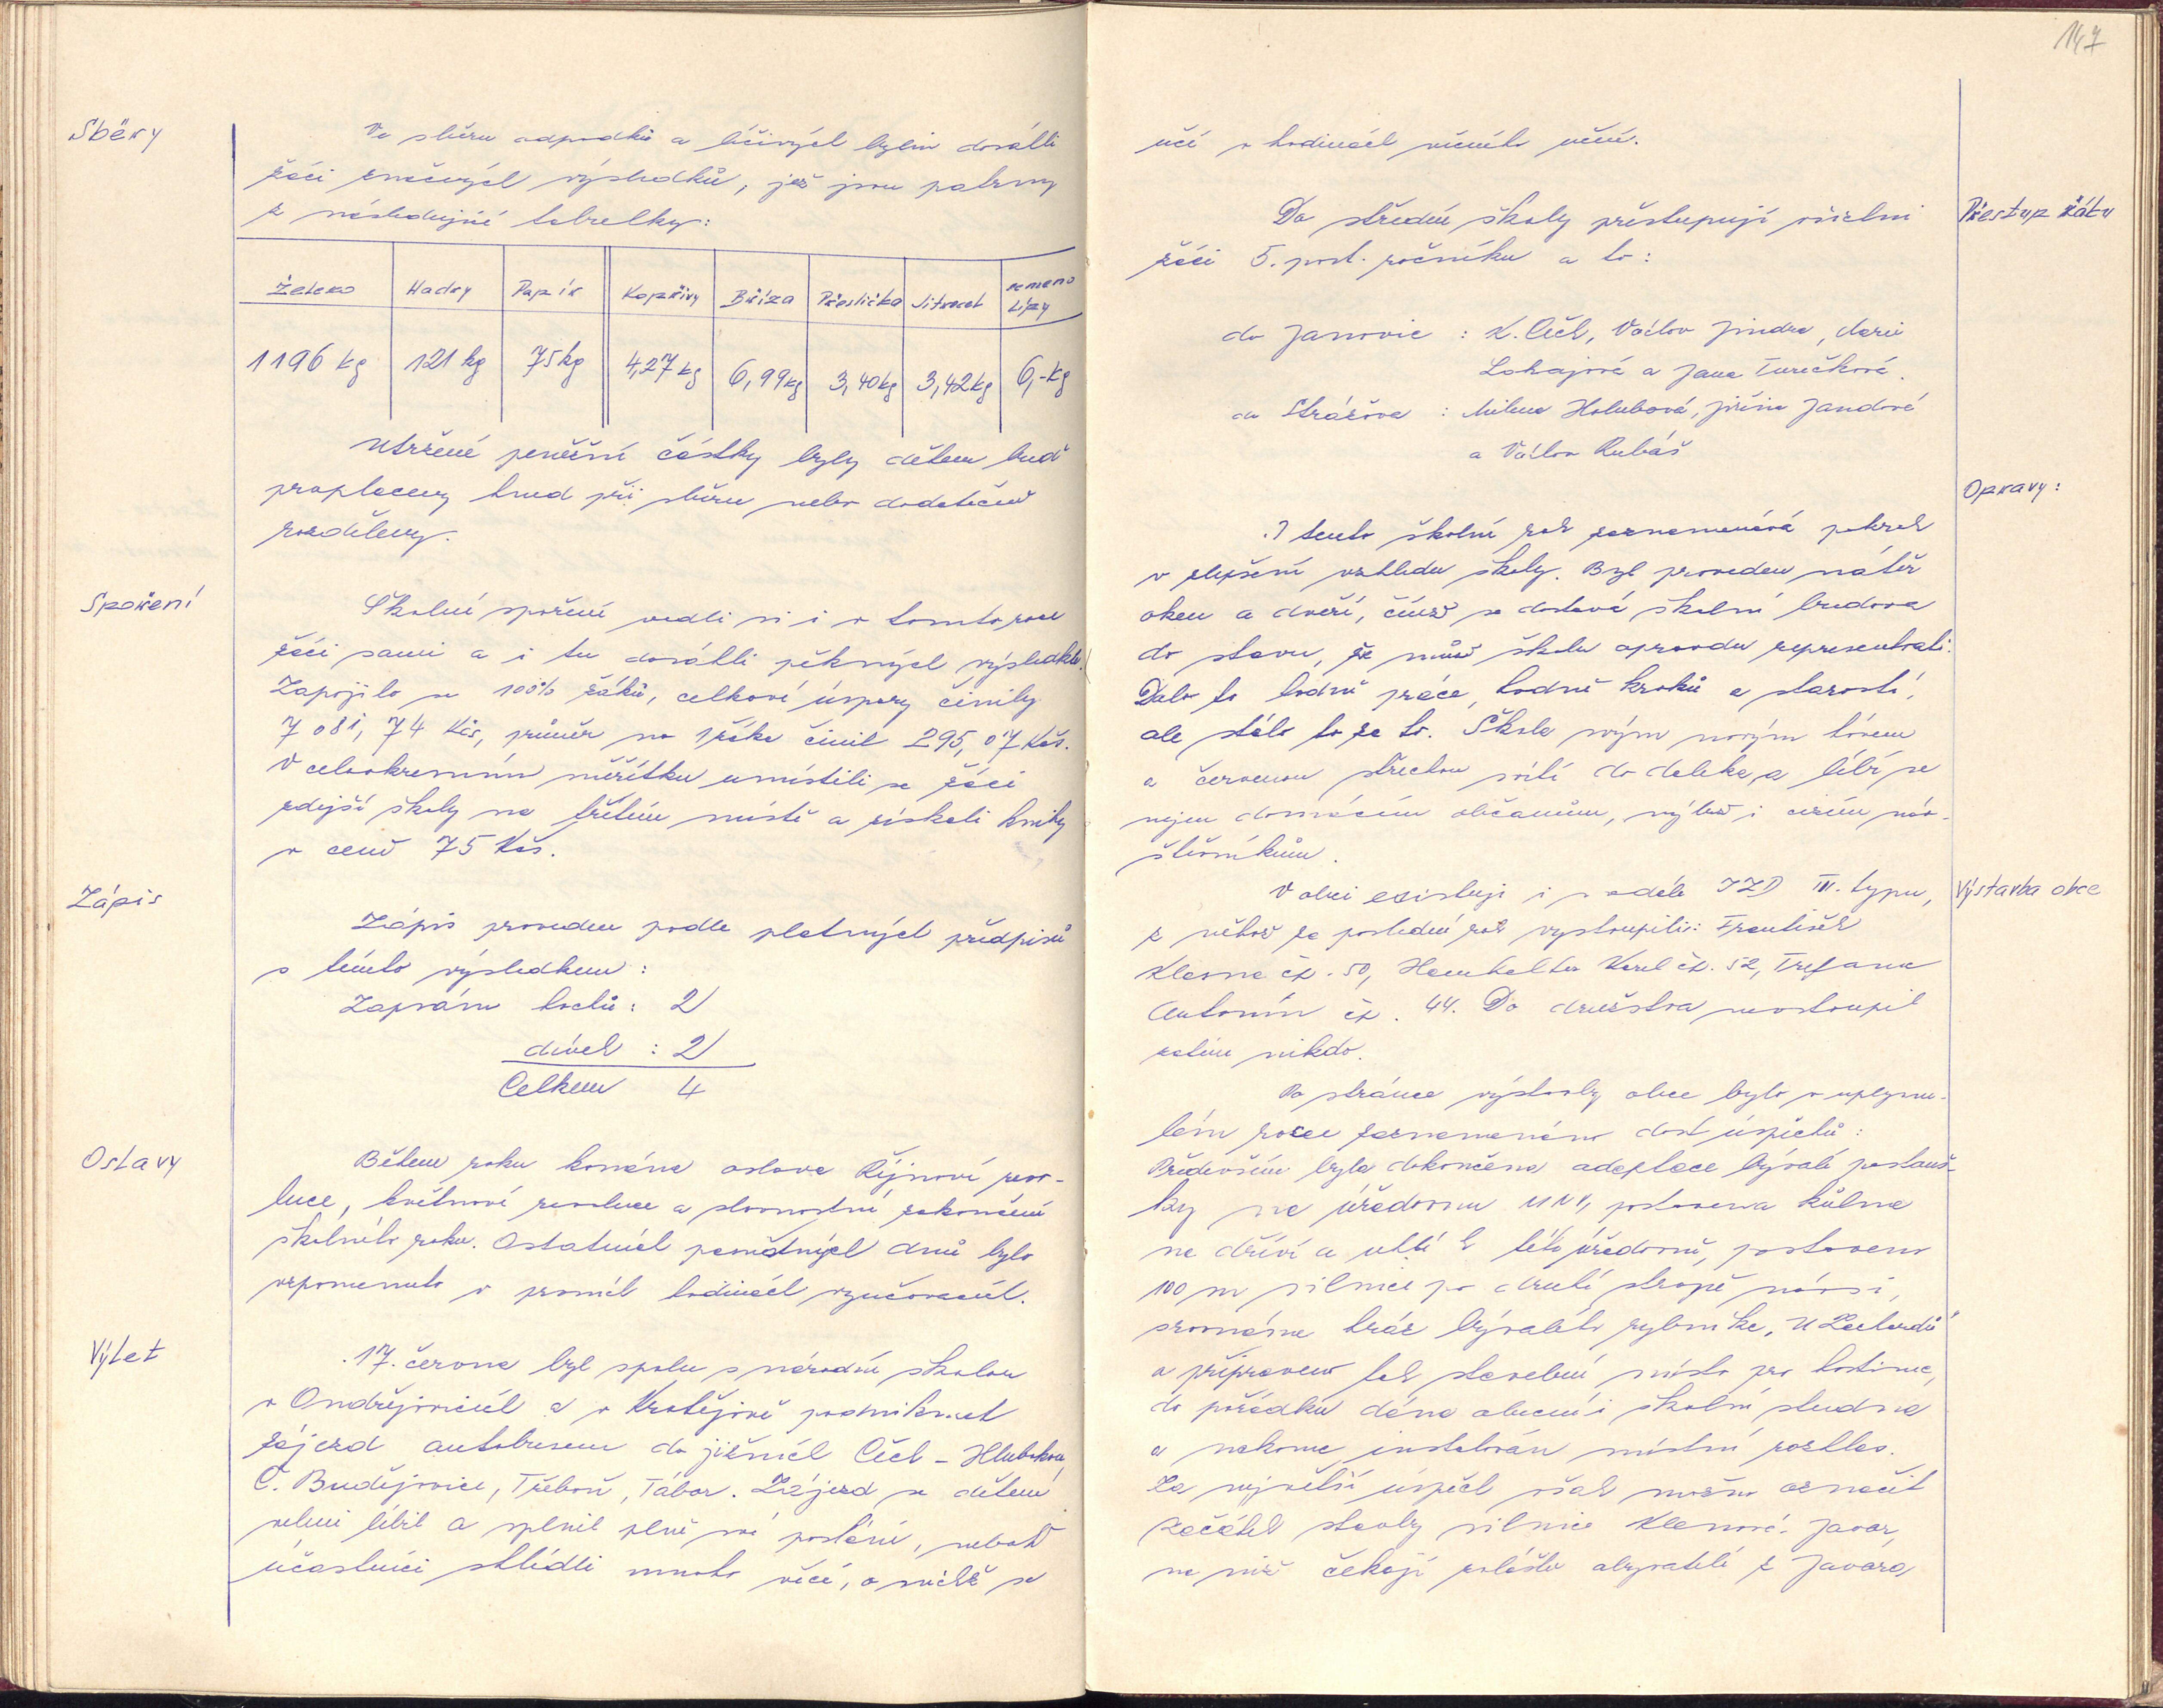 Sběry
Ve sběru odpadků a léčivých bylin dosáhli
žáci značných výsledků, jež jsou patrny
z následující tabelky:
Železo Hadry Papír Kopřivy Bříza Přeslička Jitrocel semeno lípy
1196 kg 121 kg 75 kg 4,27 kg 6,99 kg 3,40 kg 3,42 kg 6,- kg
Utržené peněžní částky byly dětem buď
proplaceny hned při sběru nebo dodatečně
rozděleny.
Spoření
Školní spoření vedli si i v tomto roce
žáci sami a i tu dosáhli pěkných výsledků.
Zapojilo se 100% žáků, celkové úspory činily
7 081,74 Kčs, průměr na 1 žáka činil 295,07 Kčs.
V celookresním měřítku umístili se žáci
zdejší školy na třetím místě a získali knihy
v ceně 75 Kčs.
Zápis
Zápis proveden podle platných předpisů
s tímto výsledkem:
Zapsáno hochů: 2
dívek: 2
Celkem 4
Oslavy
Během roku konána oslava Říjnové revo-
luce, květnové revoluce a slavnostní zakončení
školního roku. Ostatních památných dnů bylo
vzpomenuto v prvních hodinách vyučovacích.
Výlet
17. června byl spolu s národní školou
v Ondřejovicích a v Vratějově podniknut
zájezd autobusem do jižních Čech - Hlubokou,
Č. Budějovice, Třeboň, Tábor. Zájezd se dětem
velmi líbil a splnil plně své poslání, neboť
účastníci shlédli mnoho věcí, o nichž se
147
učí v hodinách věcného učení.
Přestup žáků
Do střední školy přestupují všichni
žáci 5. post. ročníku a to:
do Janovic : K. Čech, Václav Jindra, Marie
Lokajová a Jana Turečková.
do Strážova : Milena Holubová, Jiřina Jandová
a Václav Rubáš
Opravy:
I tento školní rok zaznamenává pokrok
v zlepšení vzhledu školy. Byl proveden nátěr
oken a dveří, čímž se dostává školní budova
do stavu, že může školu opravdu representovati.
Dalo to hodně práce, hodně kroků a starostí,
ale stálo to za to. Škola svým novým hávem
a červenou střechou svítí do daleka a líbí se
nejen domácím občanům, nýbrž i cizím náv-
štěvníkům.
Výstavba obce
V obci existuje i nadále JZD III. typu,
z něhož za poslední rok vystoupili: František
Klasna čp. 50, Karel čp. 52,
Antonín čp. 44. Do družstva nevstoupil
zatím nikdo.
Po stránce výstavby obce bylo v uplynu-
lém roce zaznamenáno dost úspěchů:
Především byla dokončena adaptace bývalé pastouš-
ky na úřadovnu MNV, postavena kůlna
na dříví a uhlí k této úřadovně, postaveno
100 m silnice po druhé straně návsi,
srovnána hráz bývalého rybníka „U
a připraveno tak stavební místo pro hostinec,
do pořádku dána obecní i školní studna
a nakonec instalován místní rozhlas.
Za největší úspěch však možno označit
začátek stavby silnice Klenová - Javor,
na niž čekají zvláště obyvatelé z Javora